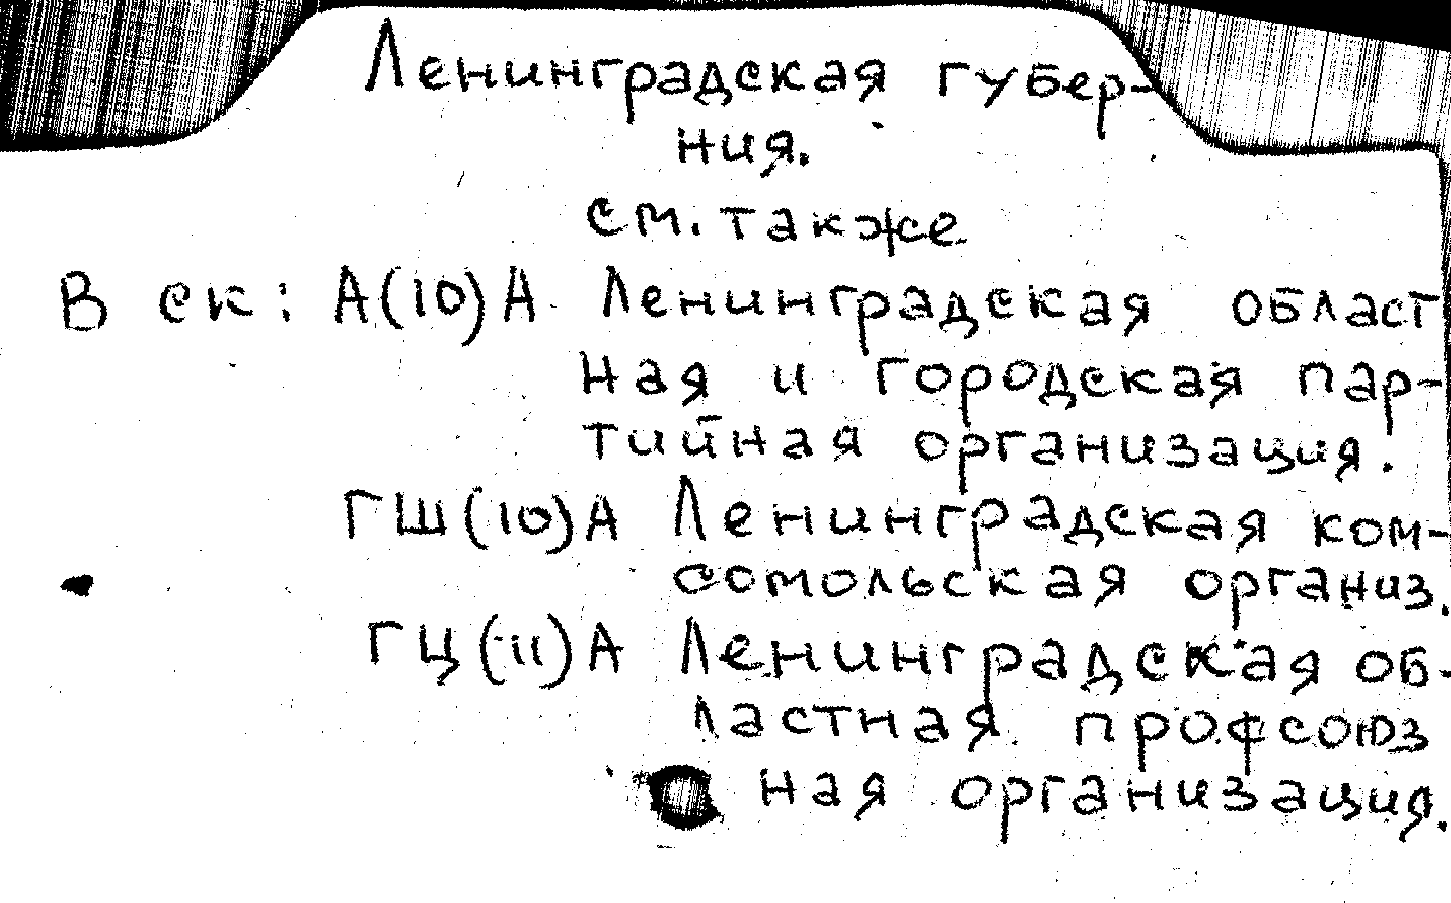 Ленинградская губер-
ния.
см. также
В ск: А(10)А Ленинградская област
ная и городская пар-
тийная организация.
ГШ(10)А Ленинградская ком-
сомольская организ.
ГЦ(11)А Ленинградская об-
ластная профсоюз
ная организация.